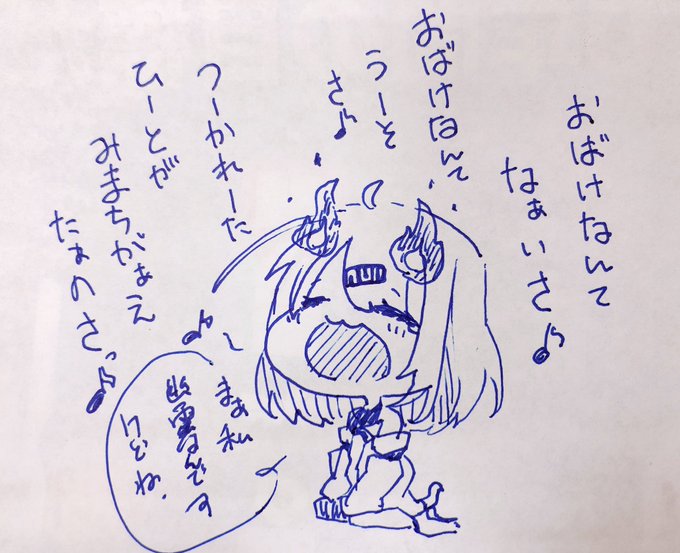 おばけなんて
なぁいさ♪
おばけなんて
うーそ
さ♪
つーかれーた
ひーとが
みまちがぁえ
たぁのさっ♪
まぁ私
幽霊なんです
けどね、